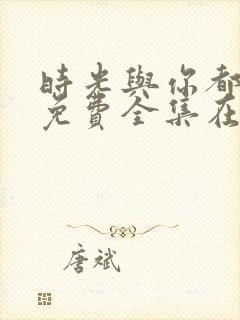 時光與你都
免費全集在
唐斌